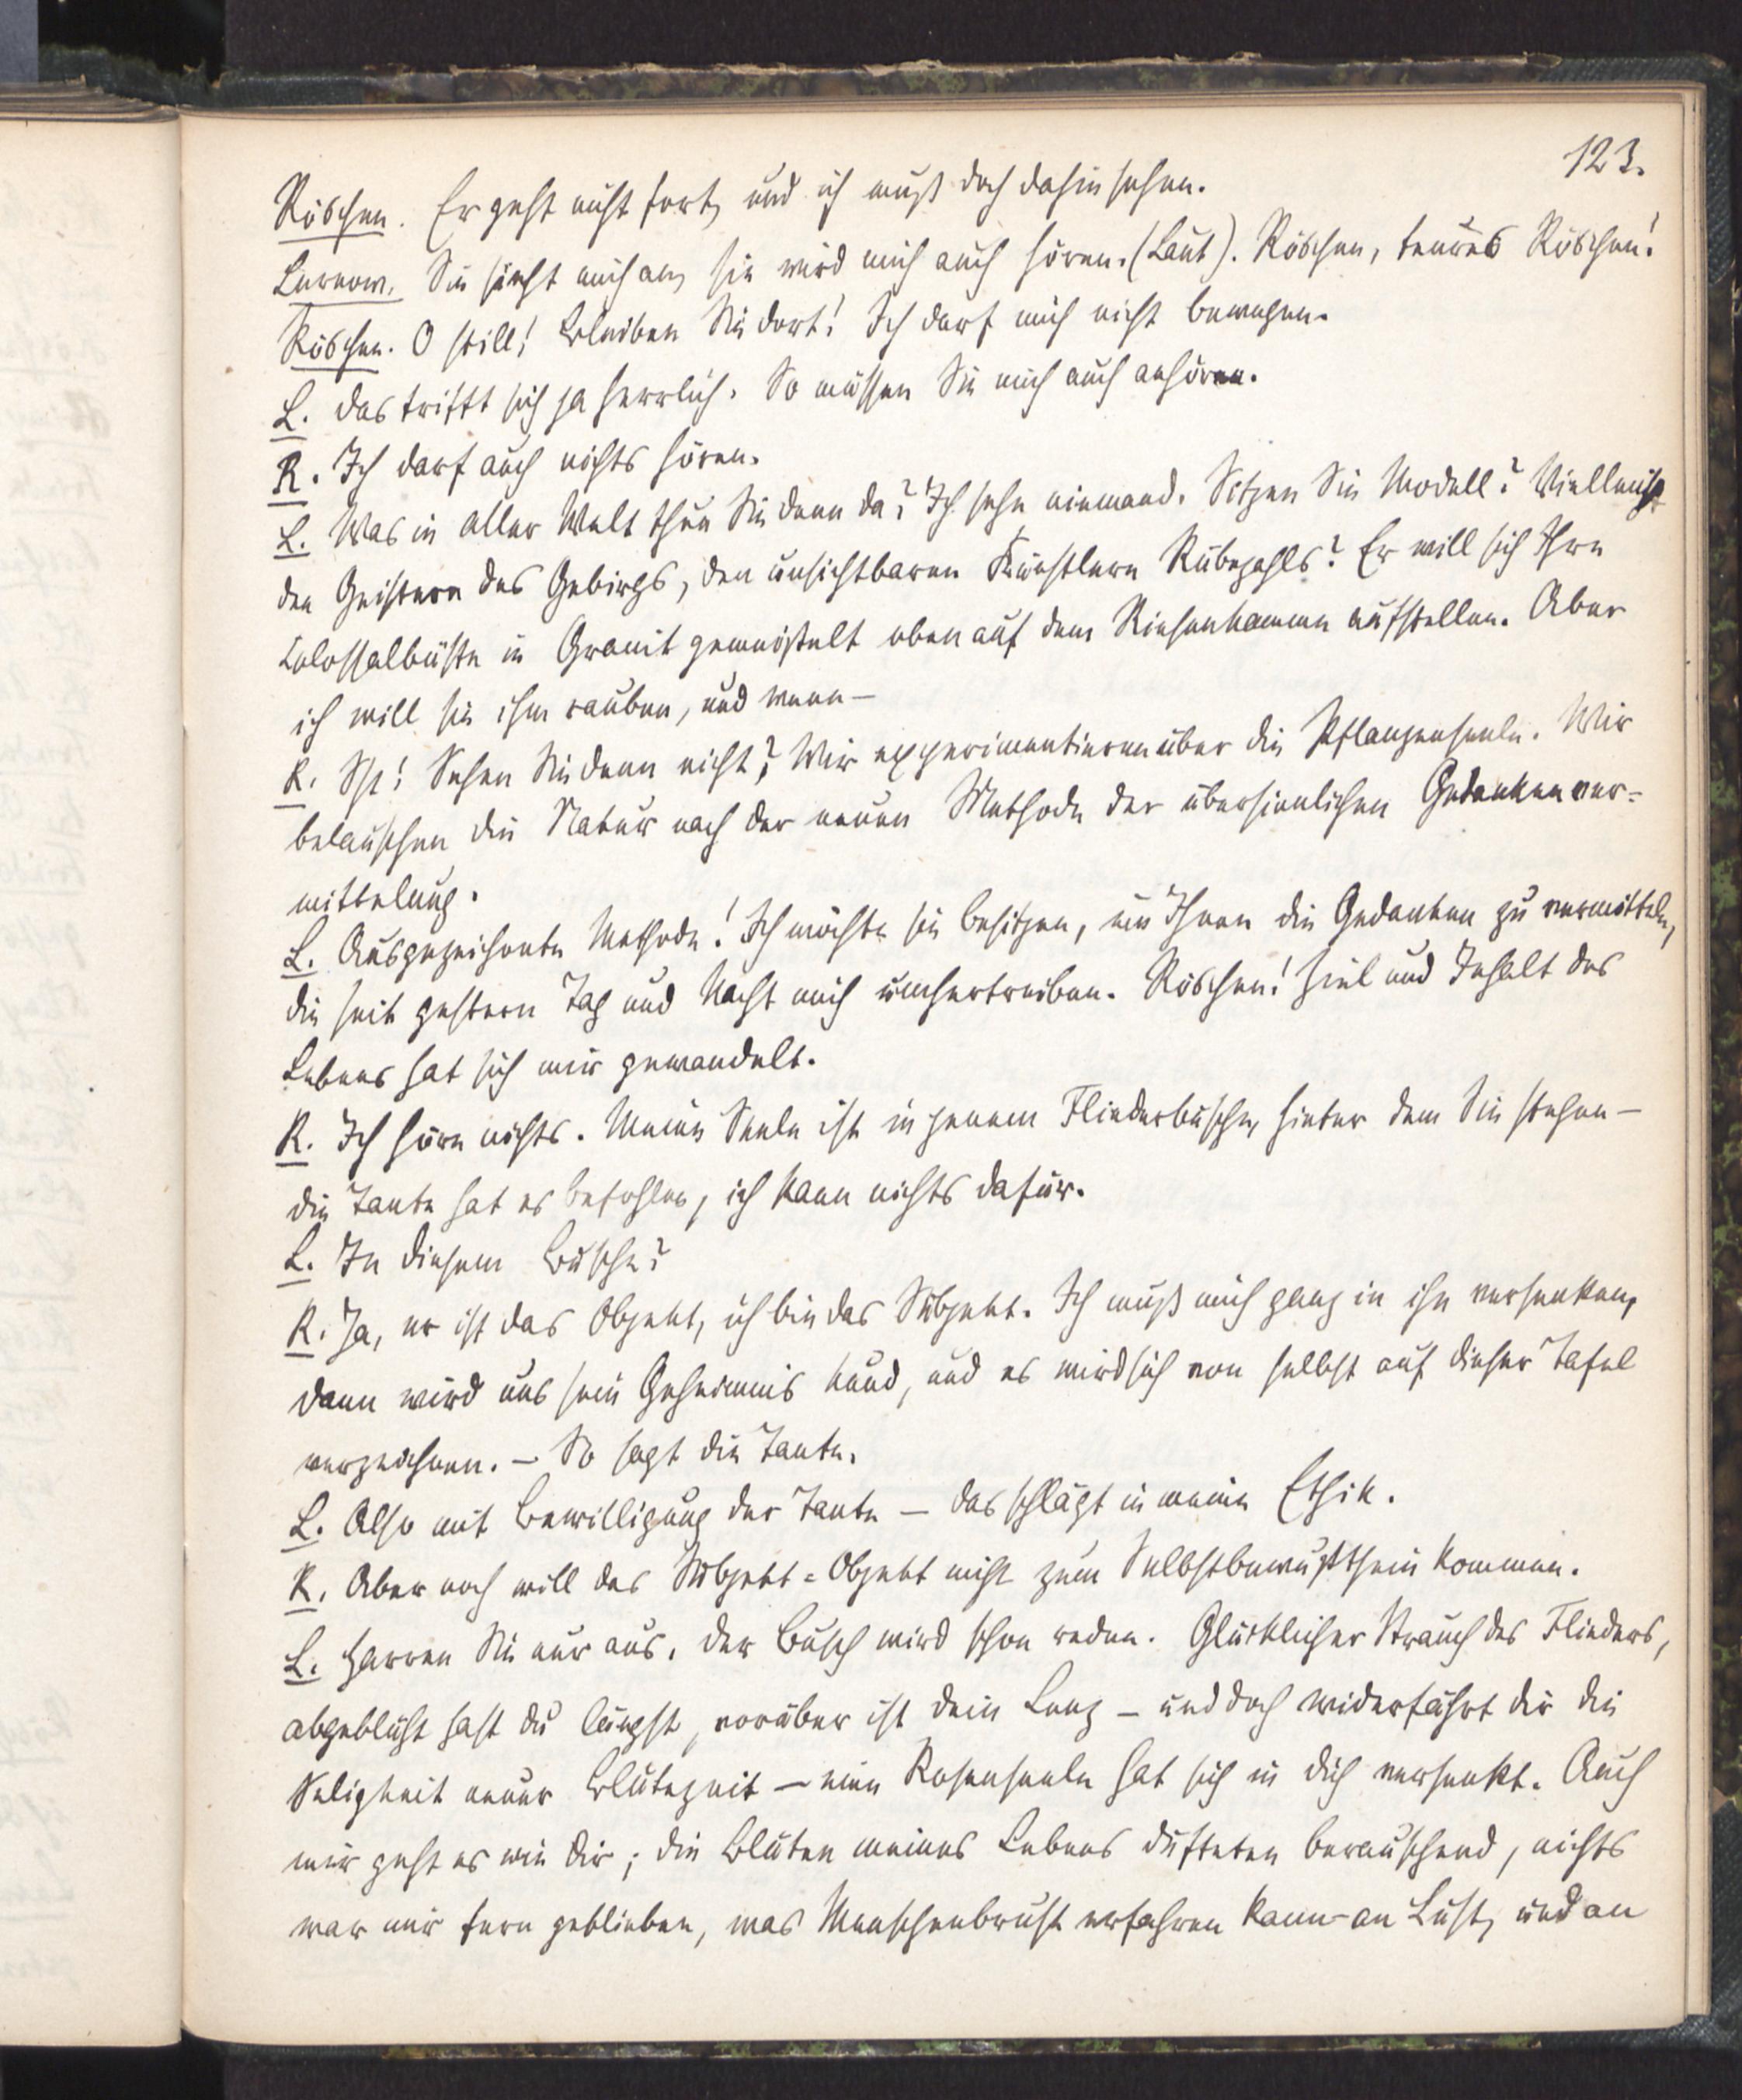 123.
Röschen. Er geht nicht fort, und ich muß doch dahin sehen.
Lernow. Sie sieht mich an, sie wird mich auch hören. (Laut). Röschen, teures Röschen!
Röschen. O still! Bleiben Sie dort! Ich darf mich nicht bewegen.
L. Das trifft sich ja herrlich. So müssen Sie mich auch anhören.
R. Ich darf auch nichts hören.
L. Was in aller Welt thun Sie denn da? Ich sehe niemand. Sitzen Sie Modell? Vielleicht
den Geistern des Gebirgs, den unsichtbaren Künstlern Rübezahls? Er will sich Ihre
Colossalbüste in Granit gemeißelt oben auf dem Riesenkamme aufstellen. Aber
ich will sie ihm rauben, und wenn —
R. Sst! Sehen Sie denn nicht? Wir experimentieren über die Pflanzenseele. Wir
belauschen die Natur nach der neuen Methode der übersinnlichen Gedankenver=
mittelung.
L. Ausgezeichnete Methode! Ich möchte sie besitzen, um Ihnen die Gedanken zu vermitteln,
die seit gestern Tag und Nacht mich umhertreiben. Röschen! Ziel und Inhalt des
Lebens hat sich mir gewandelt.
R. Ich höre nichts. Meine Seele ist in jenem Fliederbusche, hinter dem Sie stehen —
die Tante hat es befohlen, ich kann nichts dafür.
L. In diesem Busche?
R. Ja, er ist das Objekt, ich bin das Subjekt. Ich muß mich ganz in ihn versenken,
dann wird uns sein Geheimnis kund, und es wird sich von selbst auf dieser Tafel
verzeichnen. — So sagt die Tante.
L. Also mit Bewilligung der Tante — das schlägt in meine Ethik.
R. Aber noch will das Subjekt=Objekt nicht zum Selbstbewußtsein kommen.
L. Harren Sie nur aus, der Busch wird schon reden. Glücklicher Strauch des Flieders,
abgeblüht hast du längst, vorüber ist dein Lenz — und doch widerfährt dir die
Seligkeit neuer Blütezeit — eine Rosenseele hat sich in dich versenkt. Auch
mir geht es wie dir; die Blüten meines Lebens dufteten berauschend, nichts
war mir fern geblieben, was Menschenbrust erfahren kann an Lust, und an